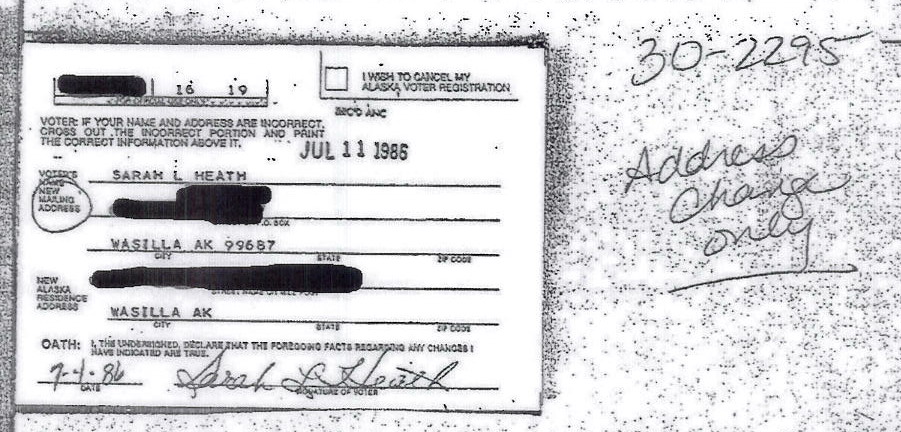 30-2295
16 19
FOR OFFICE USE ONLY
I WISH TO CANCEL MY
ALASKA VOTER REGISTRATION
REC'D ANC
VOTER: IF YOUR NAME AND ADDRESS ARE INCORRECT,
CROSS OUT THE INCORRECT PORTION AND PRINT
THE CORRECT INFORMATION ABOVE IT.
JUL 11 1986
VOTER'S
NAME
SARAH L HEATH
NEW
MAILING
ADDRESS
P.O. BOX
WASILLA AK 99687
CITY STATE ZIP CODE
NEW
ALASKA
RESIDENCE
ADDRESS
WASILLA AK
CITY STATE ZIP CODE
OATH: I, THE UNDERSIGNED, DECLARE THAT THE FOREGOING FACTS REGARDING ANY CHANGES I
HAVE INDICATED ARE TRUE.
Sarah L Heath
DATE SIGNATURE OF VOTER
Address
Change
only